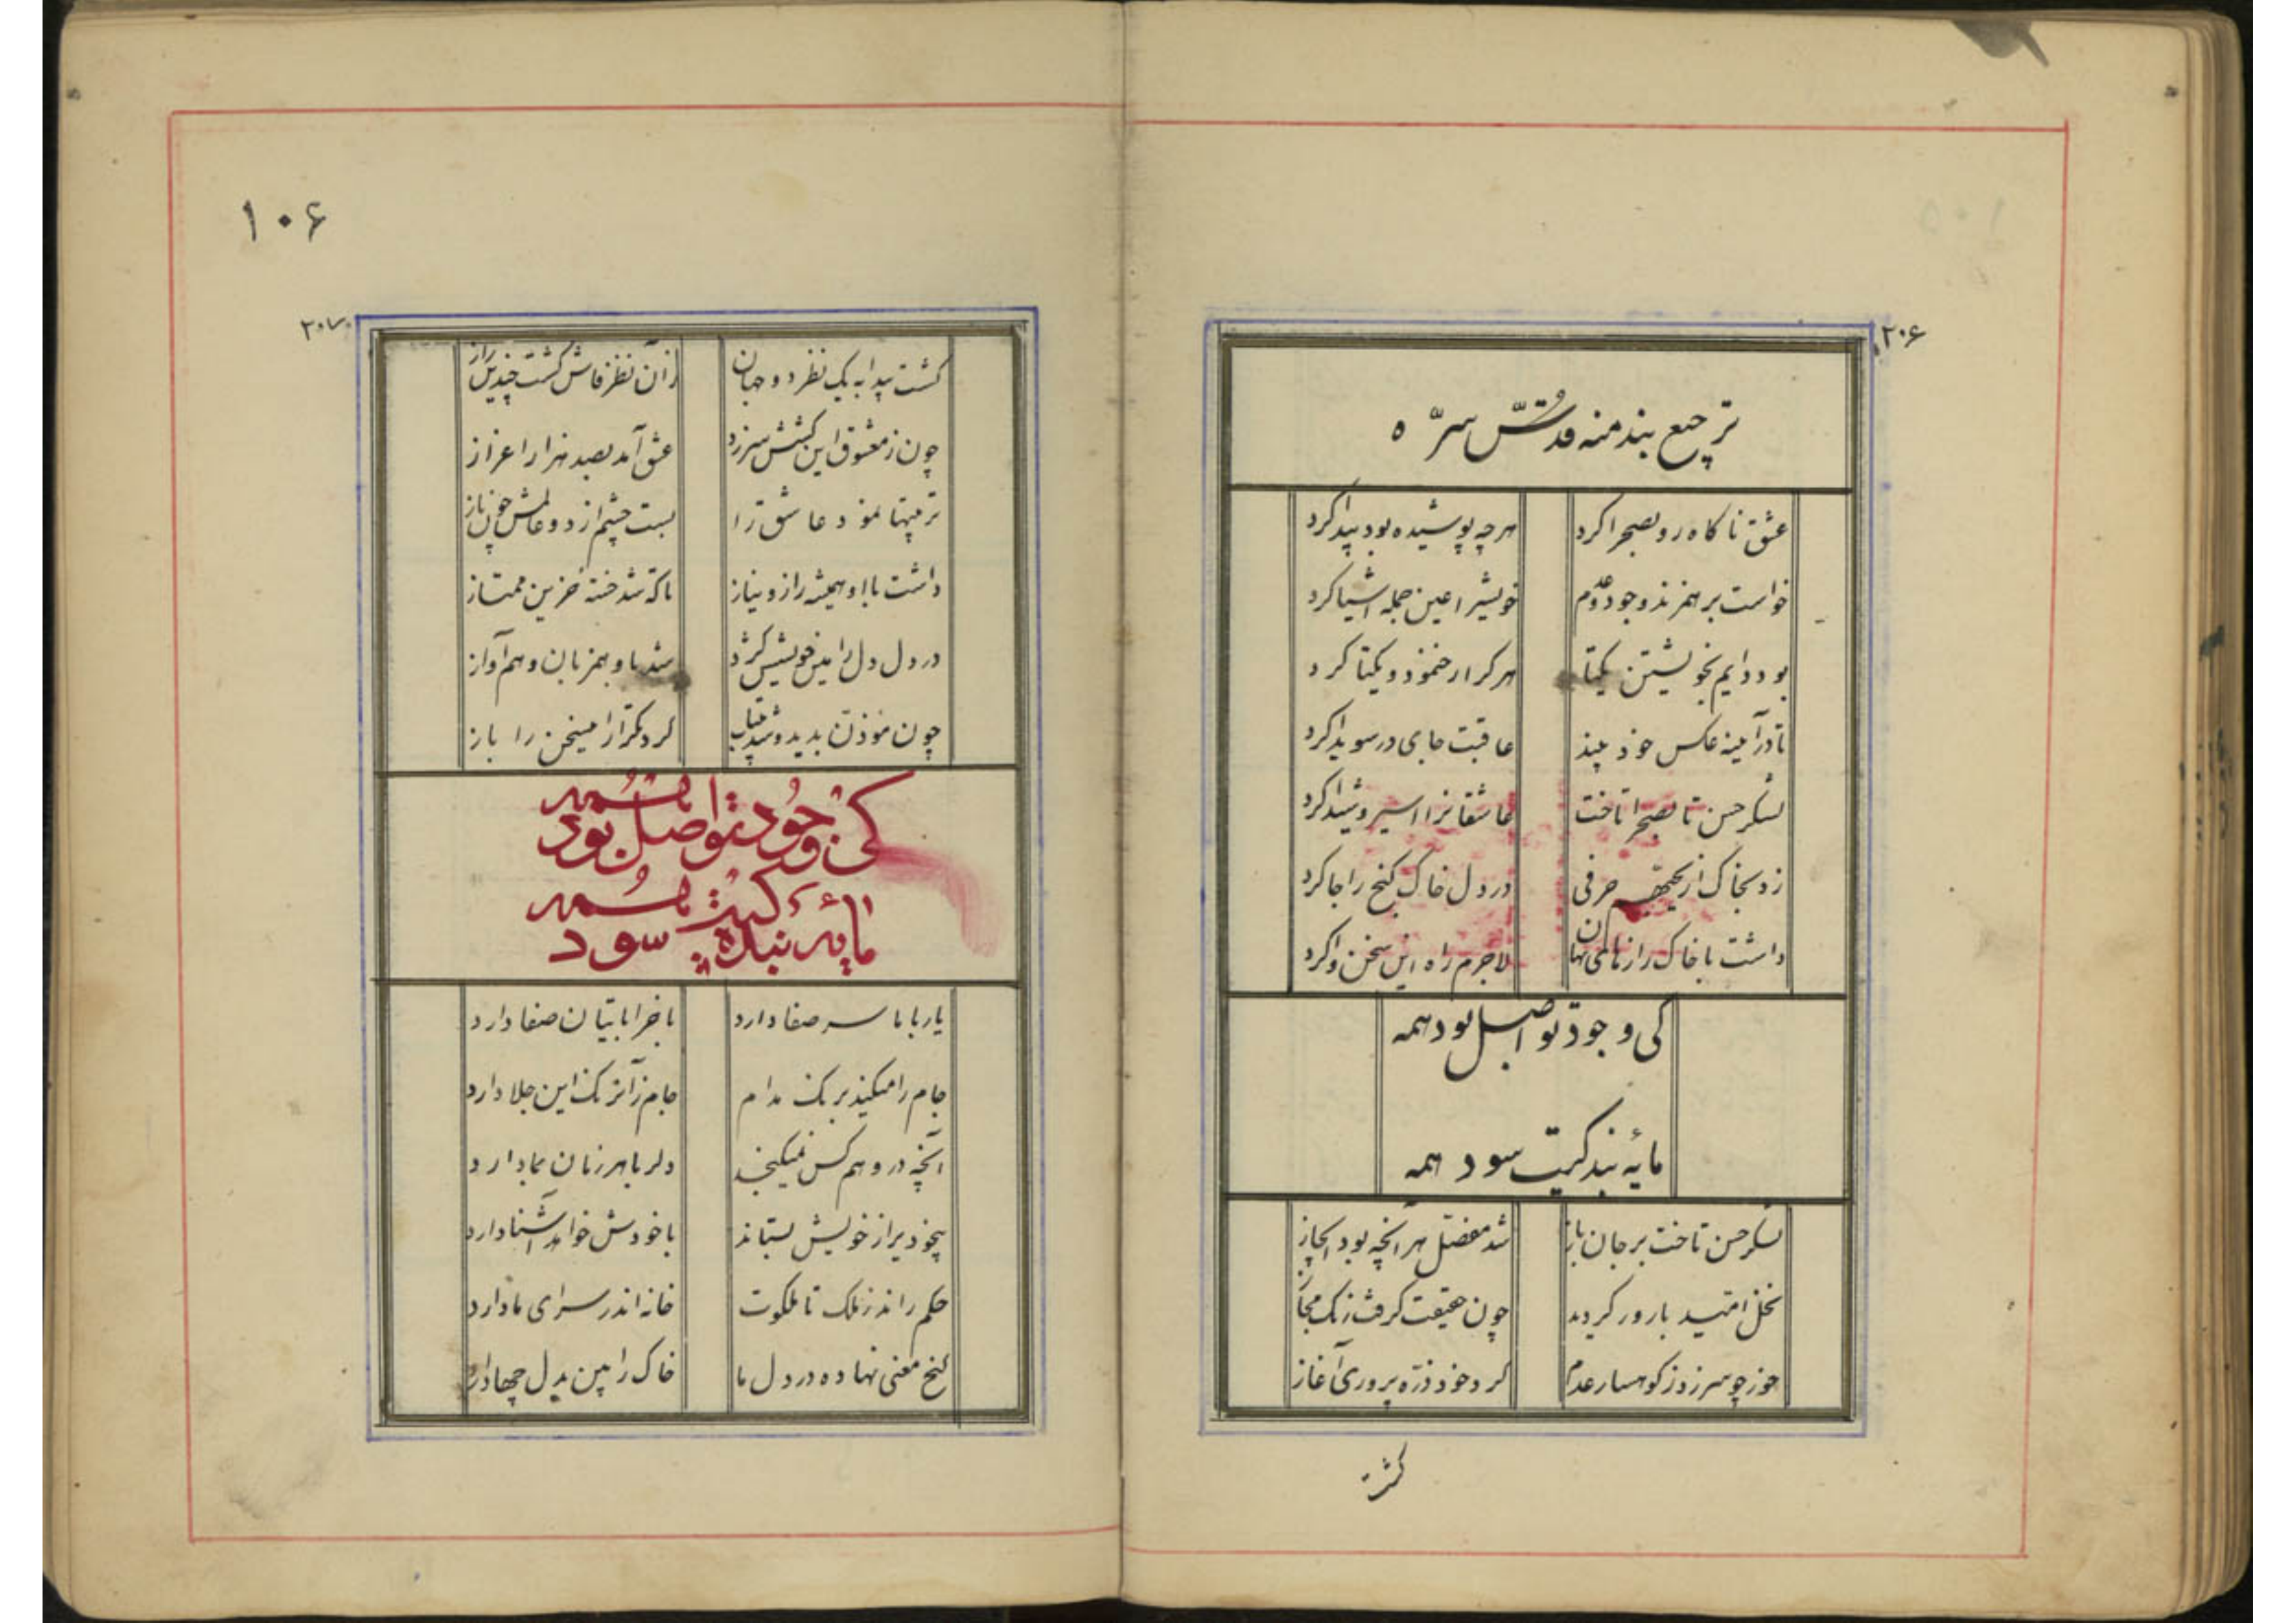 ۲۰۶
ترجیع بند منه قدّس سرّه
عشق ناکاه رو بصحرا کرد هرچه پوشیده بود پیدا کرد
خواست بر هم زند وجود و عدم خویش را عین جمله اشیا کرد
بود دایم بخویشتن یکتا هر کرا رخ نمود و یکتا کرد
تا در آینه عکس خود بیند عاقبت جای در سویدا کرد
لشکر حسن تا بصحرا تاخت عاشقانرا اسیر و شیدا کرد
زد بخاک از حرفی در دل خاک کنج را جا کرد
داشت با خاک رازهای نهان لاجرم راه این سخن وا کرد
کی وجود تو اصل بود همه
مایه بندکیت سود همه
لشکر حسن تاخت بر جان باز شد مفصّل هر آنچه بود
نخل امّید بارور کردید چون حقیقت کرفت رنک مجاز
خور چو سر زد ز کوهسار عدم کرد خود ذرّه پروری آغاز
کشت
۱۰۶
۲۰۷
کشت پیدا به یک نظر دو جهان زان نظر فاش کشت چندین راز
چون ز معشوق این کشش سر زد عشق آمد بصد هزار اعزاز
تربیتها نمود عاشق را بست چشم از دو عالمش چون باز
داشت با او همیشه راز و نیاز تا که شد خسته حزین ممتاز
در دل دل را خویش شد با و همزبان و هم آواز
چون مؤذن بدید و شد بیتاب کرد تکرار این سخن را باز
کی وجود تو اصل بود همه
مایه بندکیت سود همه
یار با ما سر صفا دارد با خراباتیان صفا دارد
جام را میکند بر کف مدام جام زآنرو کف این جلا دارد
آنچه در وهم کس نمیکنجد دلربا هر زمان بما دارد
بیخودی را ز خویش بستاند با خودش خواهد آشنا دارد
حکم راند ز ملک تا ملکوت خانه اندر سرای ما دارد
کنج معنی نهاده در دل ما خاک را بین بدل چها دارد